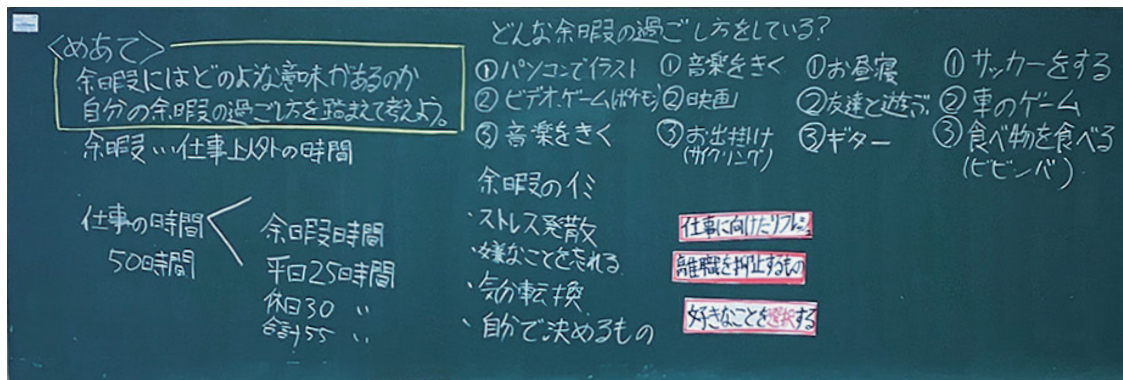 <めあて>
余暇にはどのような意味があるのか
自分の余暇の過ごし方を踏まえて考えよう。
余暇…仕事以外の時間
仕事の時間
50時間
余暇時間
平日25時間
休日30 〃
合計55 〃
どんな余暇の過ごし方をしている?
①パソコンでイラスト
②ビデオ、ゲーム(ポケモン)
③音楽をきく
①音楽をきく
②映画
③お出掛け
(サイクリング)
①お昼寝
②友達と遊ぶ
③ギター
①サッカーをする
②車のゲーム
③食べ物を食べる
(ビビンバ)
余暇のイミ
・ストレス発散
・嫌なことを忘れる
・気分転換
・自分で決めるもの
仕事に向けたリフレッシュ
離職を抑止するもの
好きなことを選択する